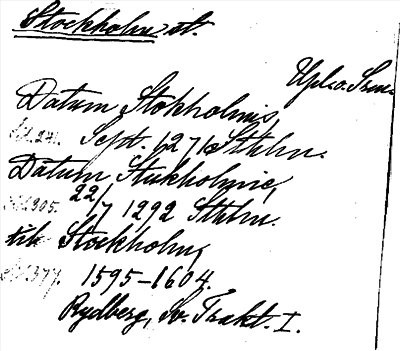 Stockholm, st.
Upl. o. Svm.
Datum Stokholmis,
s. 271. Sept. 1271. Sthlm.
Datum Stukholmie,
s. 305. 22/7 1292 Sthlm.
till Stockholm,
s. 377. 1595-1604.
Rydberg, Sv. Trakt. I.